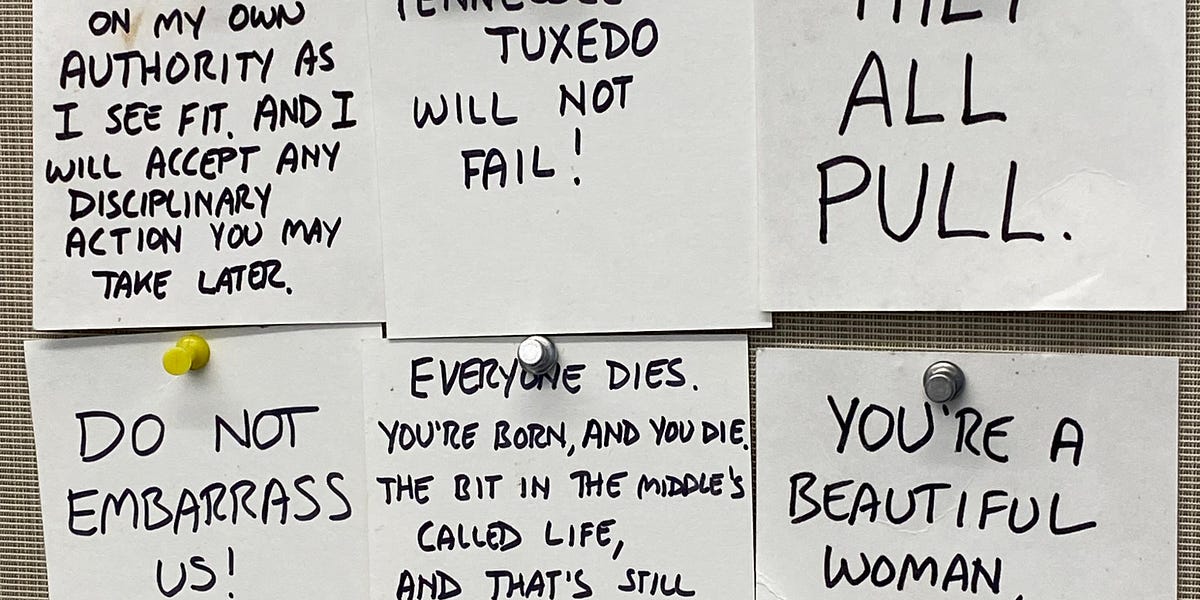 ON MY OWN
AUTHORITY AS
I SEE FIT. AND I
WILL ACCEPT ANY
DISCIPLINARY
ACTION YOU MAY
TAKE LATER.
TUXEDO
WILL NOT
FAIL!
ALL
PULL.
DO NOT
EMBARRASS
US!
EVERYONE DIES.
YOU'RE BORN, AND YOU DIE.
THE BIT IN THE MIDDLE'S
CALLED LIFE,
AND THAT'S STILL
YOU'RE A
BEAUTIFUL
WOMAN.